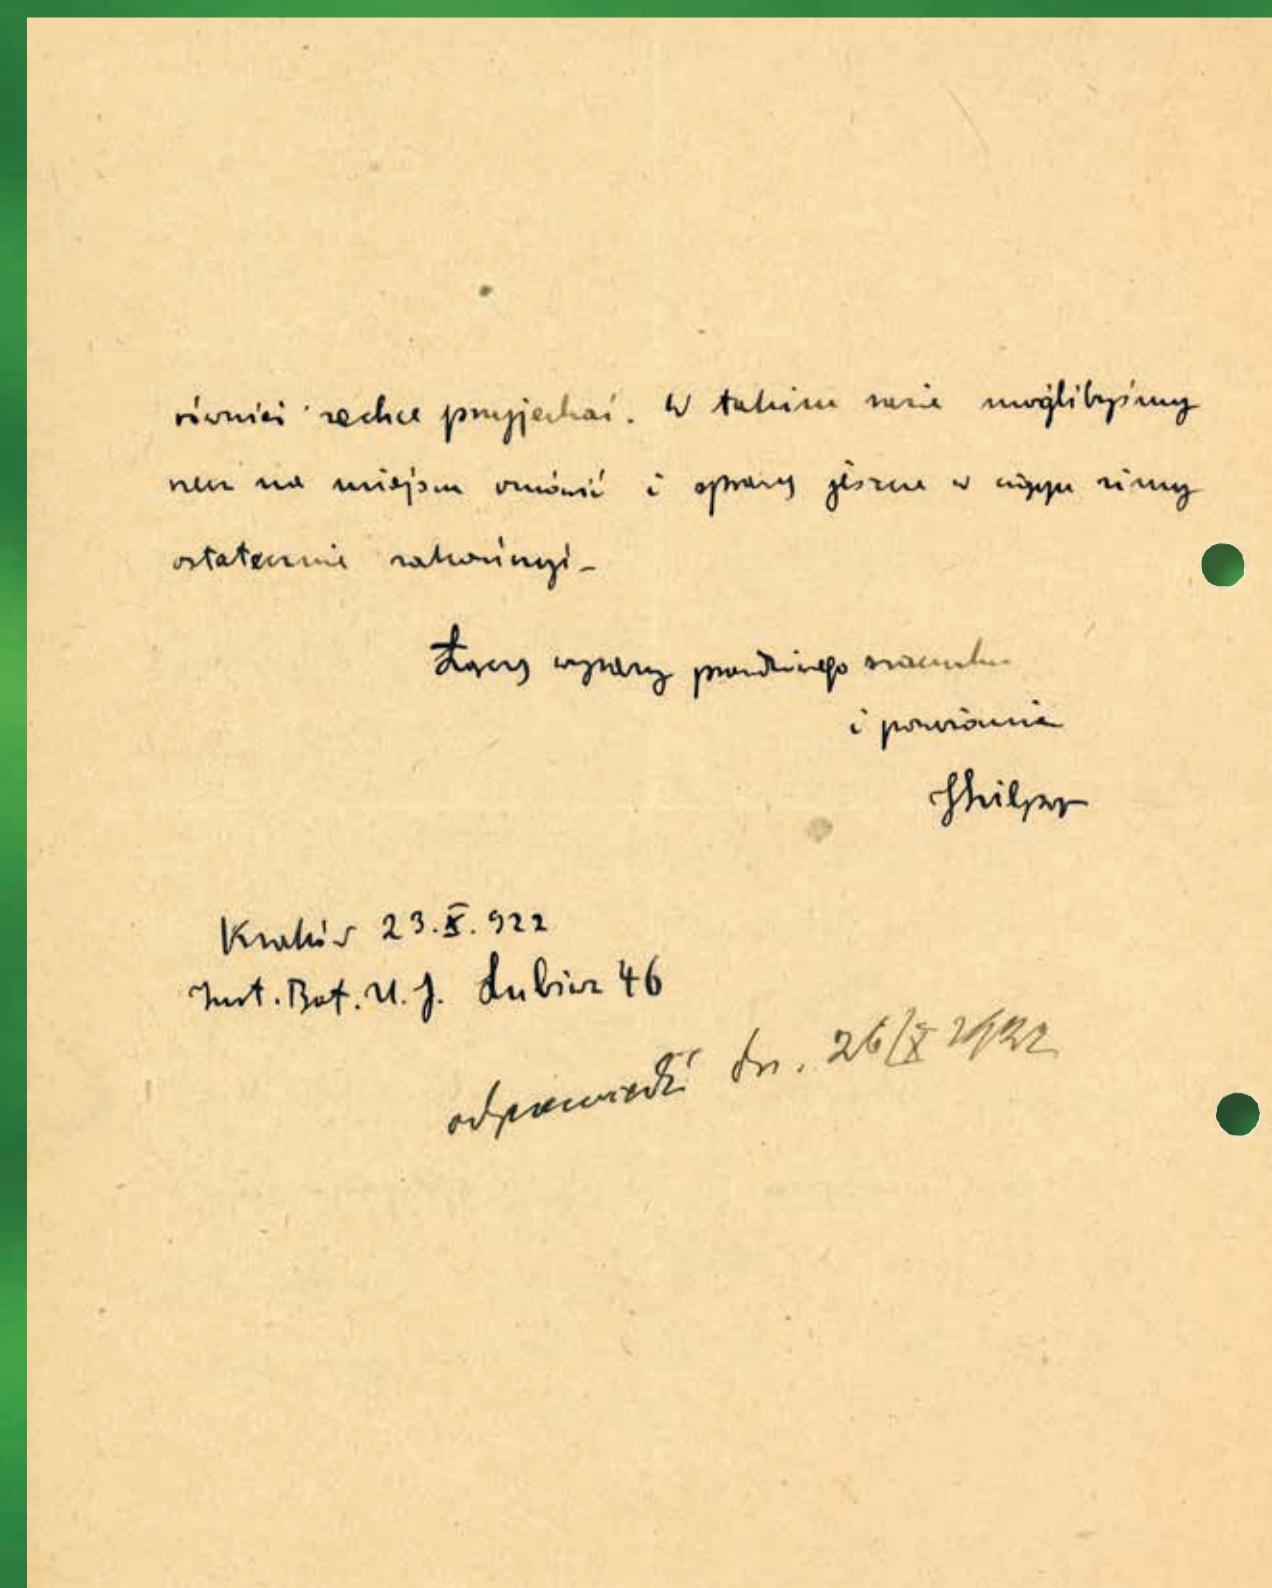 również zechce przyjechać. W takim razie moglibyśmy
rzecz na miejscu omówić i sprawę jeszcze w ciągu zimy
ostatecznie zakończyć –
Łączę wyrazy prawdziwego szacunku
i poważania
Kraków 23.X.922
Inst. Bot. U. J. Lubicz 46
odpowiedź dn. 26/X 1922